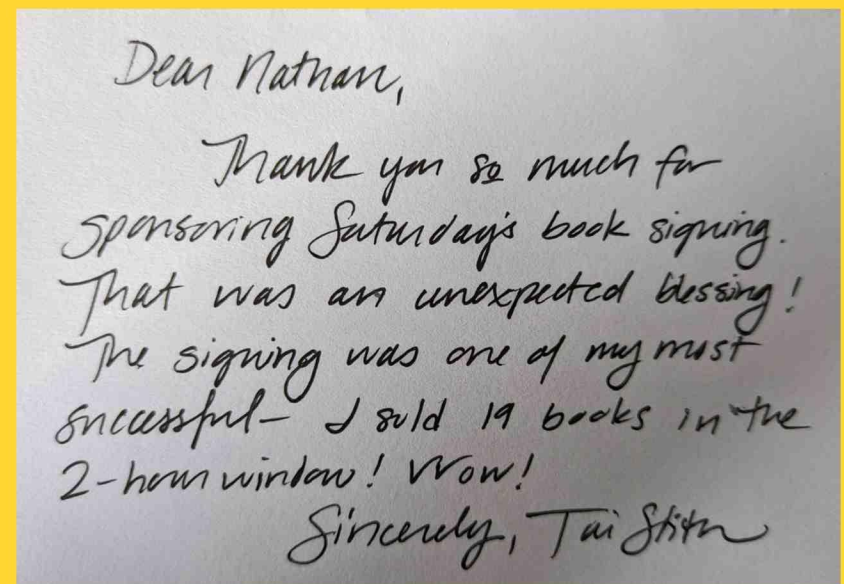 Dear Nathan,
Thank you so much for
sponsoring Saturday's book signing.
That was an unexpected blessing!
The signing was one of my most
successful— I sold 19 books in the
2-hour window! Wow!
Sincerely, Tai Stith